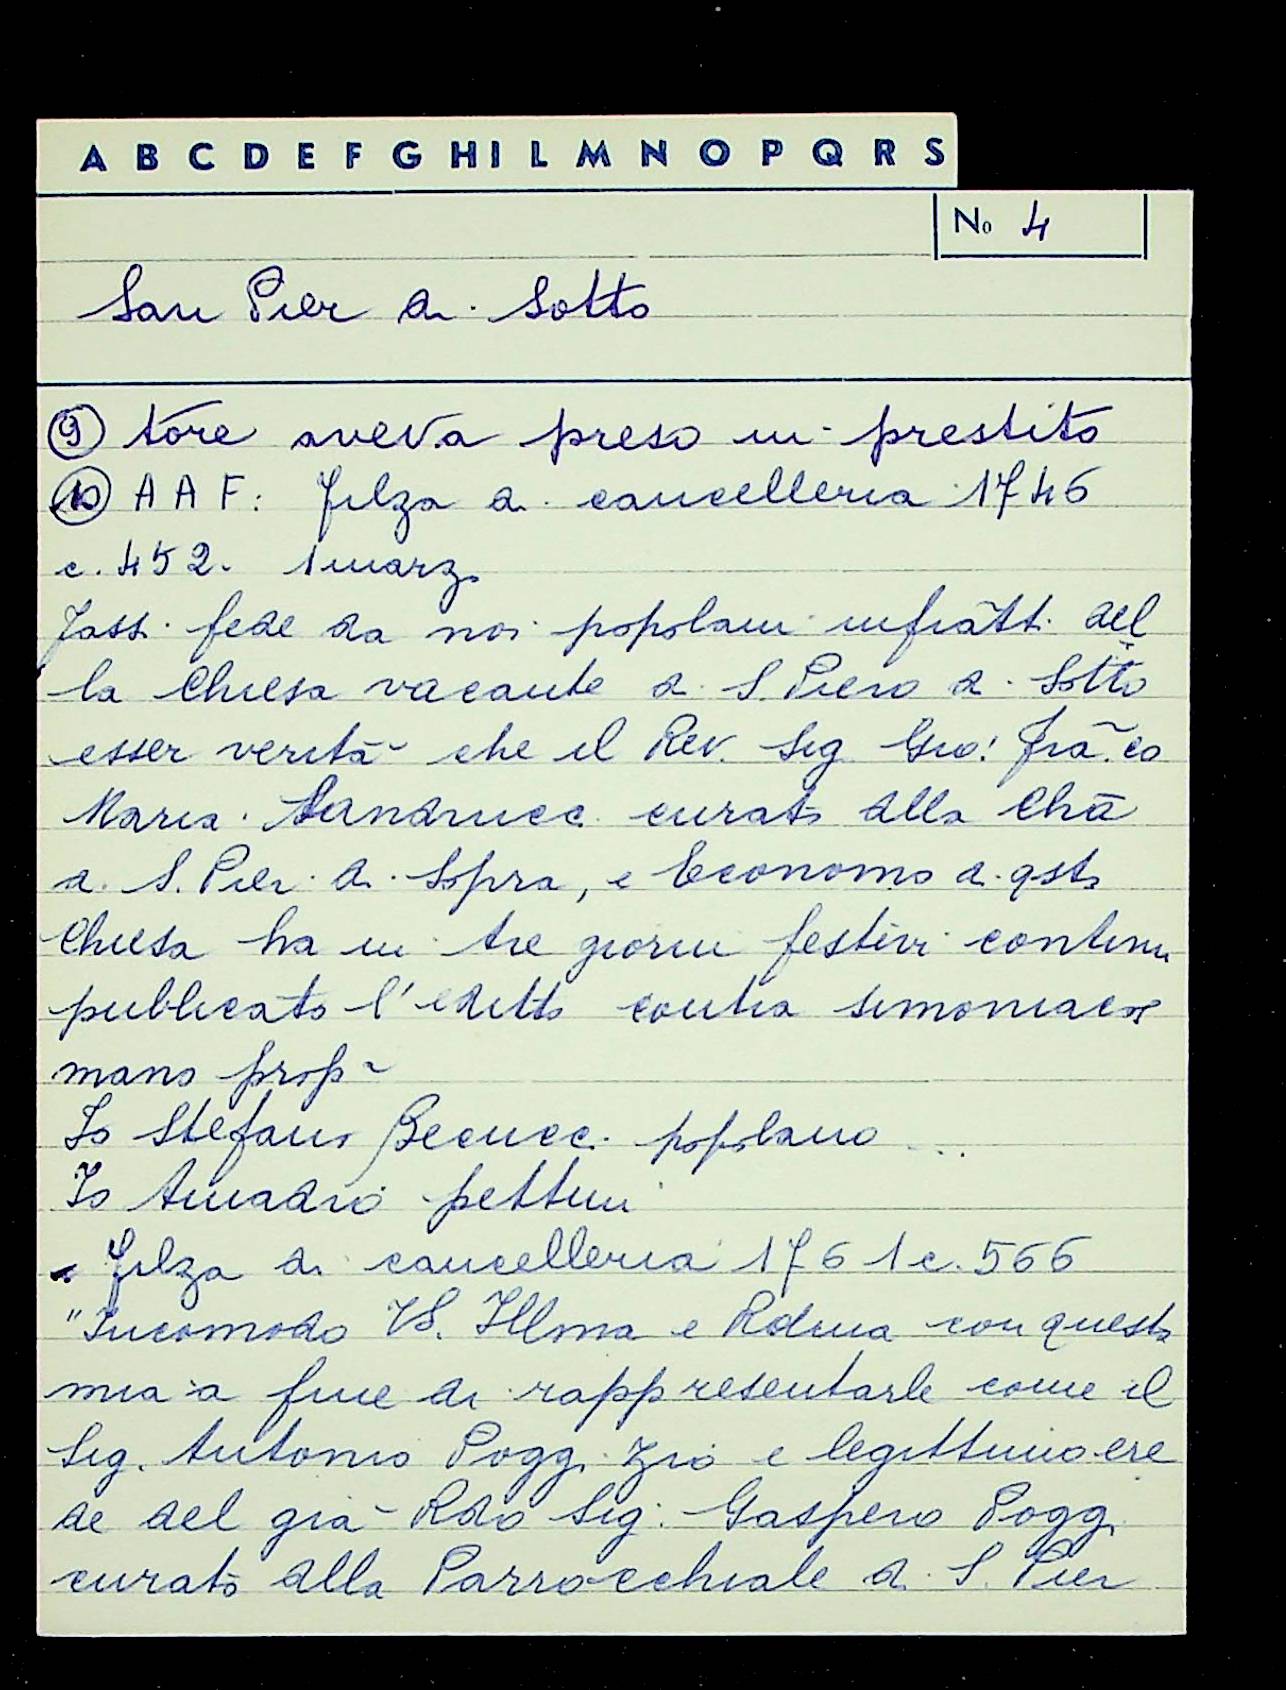 A B C D E F G H I L M N O P Q R S
No 4
San Pier di Sotto
9 tore aveva preso in prestito
10 A A F: filza di cancelleria 1746
c. 452. 1 marzo
Fassi fede da noi popolani infratti del
la Chiesa vacante di S. Piero di Sotto
esser verità che il Rev. Sig Gio: Frã.co
Maria Landrucci curato della Chã
di S. Pier di Sopra, e Economo di qsta
Chiesa ha in tre giorni festivi continui
publicato l'editto contra simoniacos
mano prop~
Io Stefano Becucci popolano ...
Io Amadio pettini
. filza di cancelleria 1761 c. 566
"Incomodo VS. Illma e Rdma con questa
mia a fine di rappresentarle come il
Sig. Antonio Poggi zio e legittimo ere
de del già Rdo Sig: Gaspero Poggi
curato della Parrocchiale di S. Pier